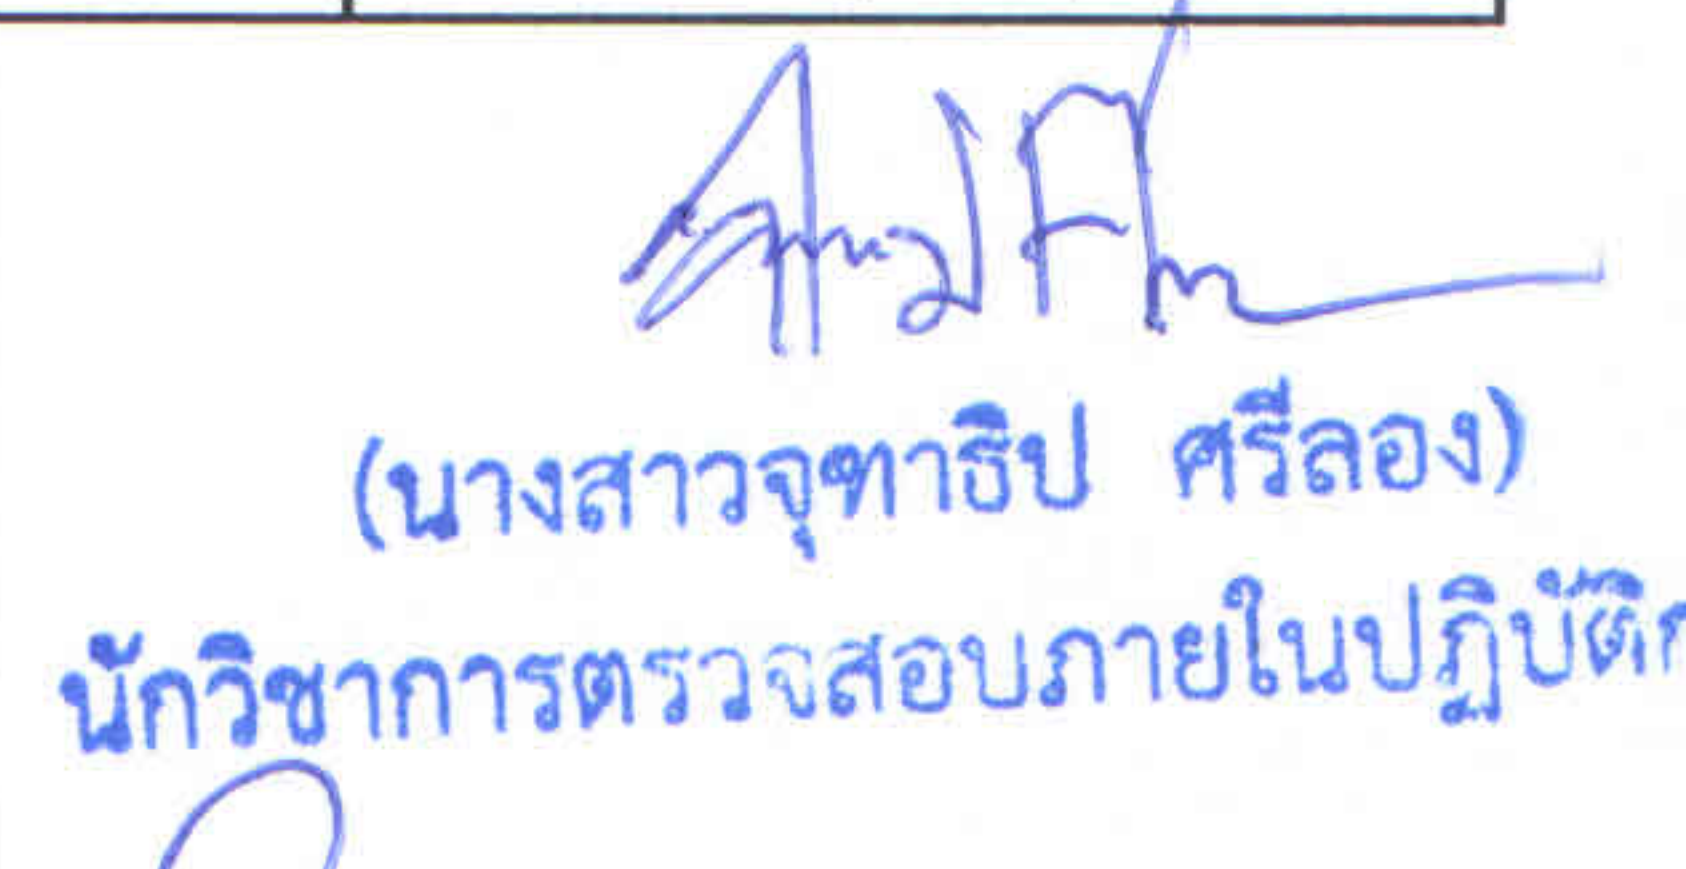 (นางสาวจุฑาธิป ศรีลอง)
นักวิชาการตรวจสอบภายในปฏิบัติก